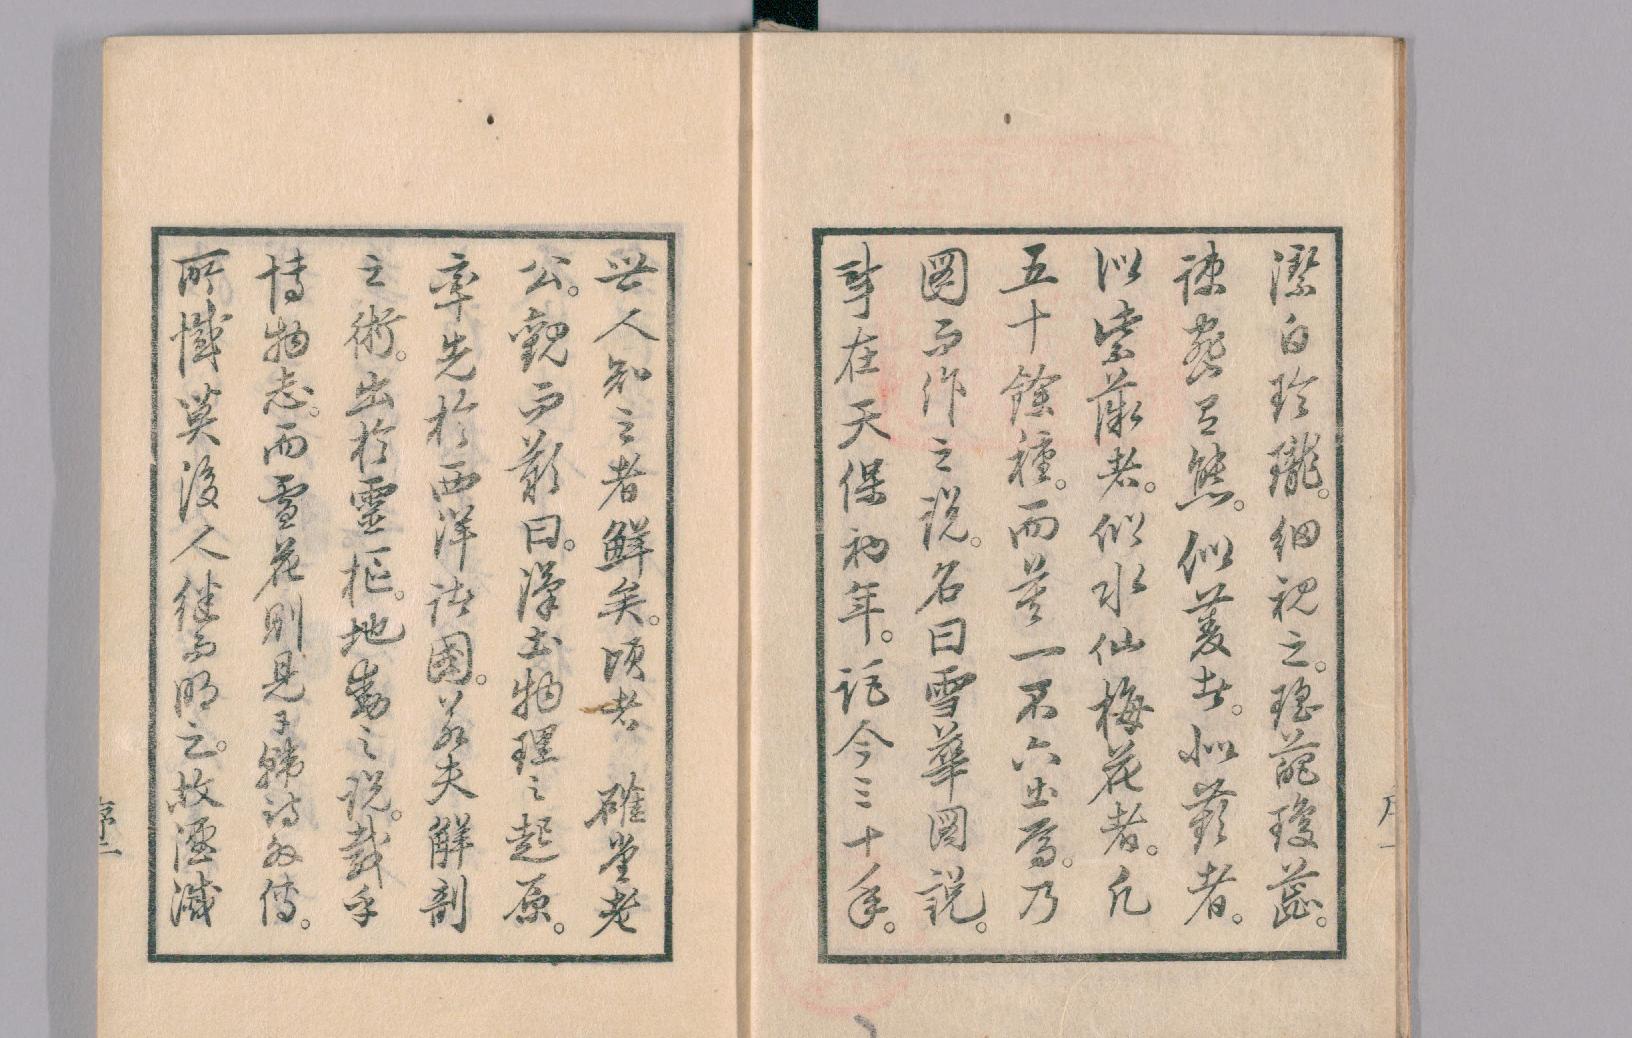 潔白玲瓏。細視之。瑤葩瓊蕊。
諫悉百態。似菱者。如蘋者。
似紫薇者。似水仙梅花者。凡
五十餘種。而莫一不六出焉。乃
図而作之説。名曰雪華図説。
事在天保初年。距今三十年。
世人知之者鮮矣。頃者 確堂老
公。観而歎曰。漢土物理之起原。
率先於西洋諸國。若夫解剖
之術。出於靈枢。地動之説。載乎
博物志。而雪花則見于韓詩外傳。
所憾莫後人継而明之。故湮滅
序二